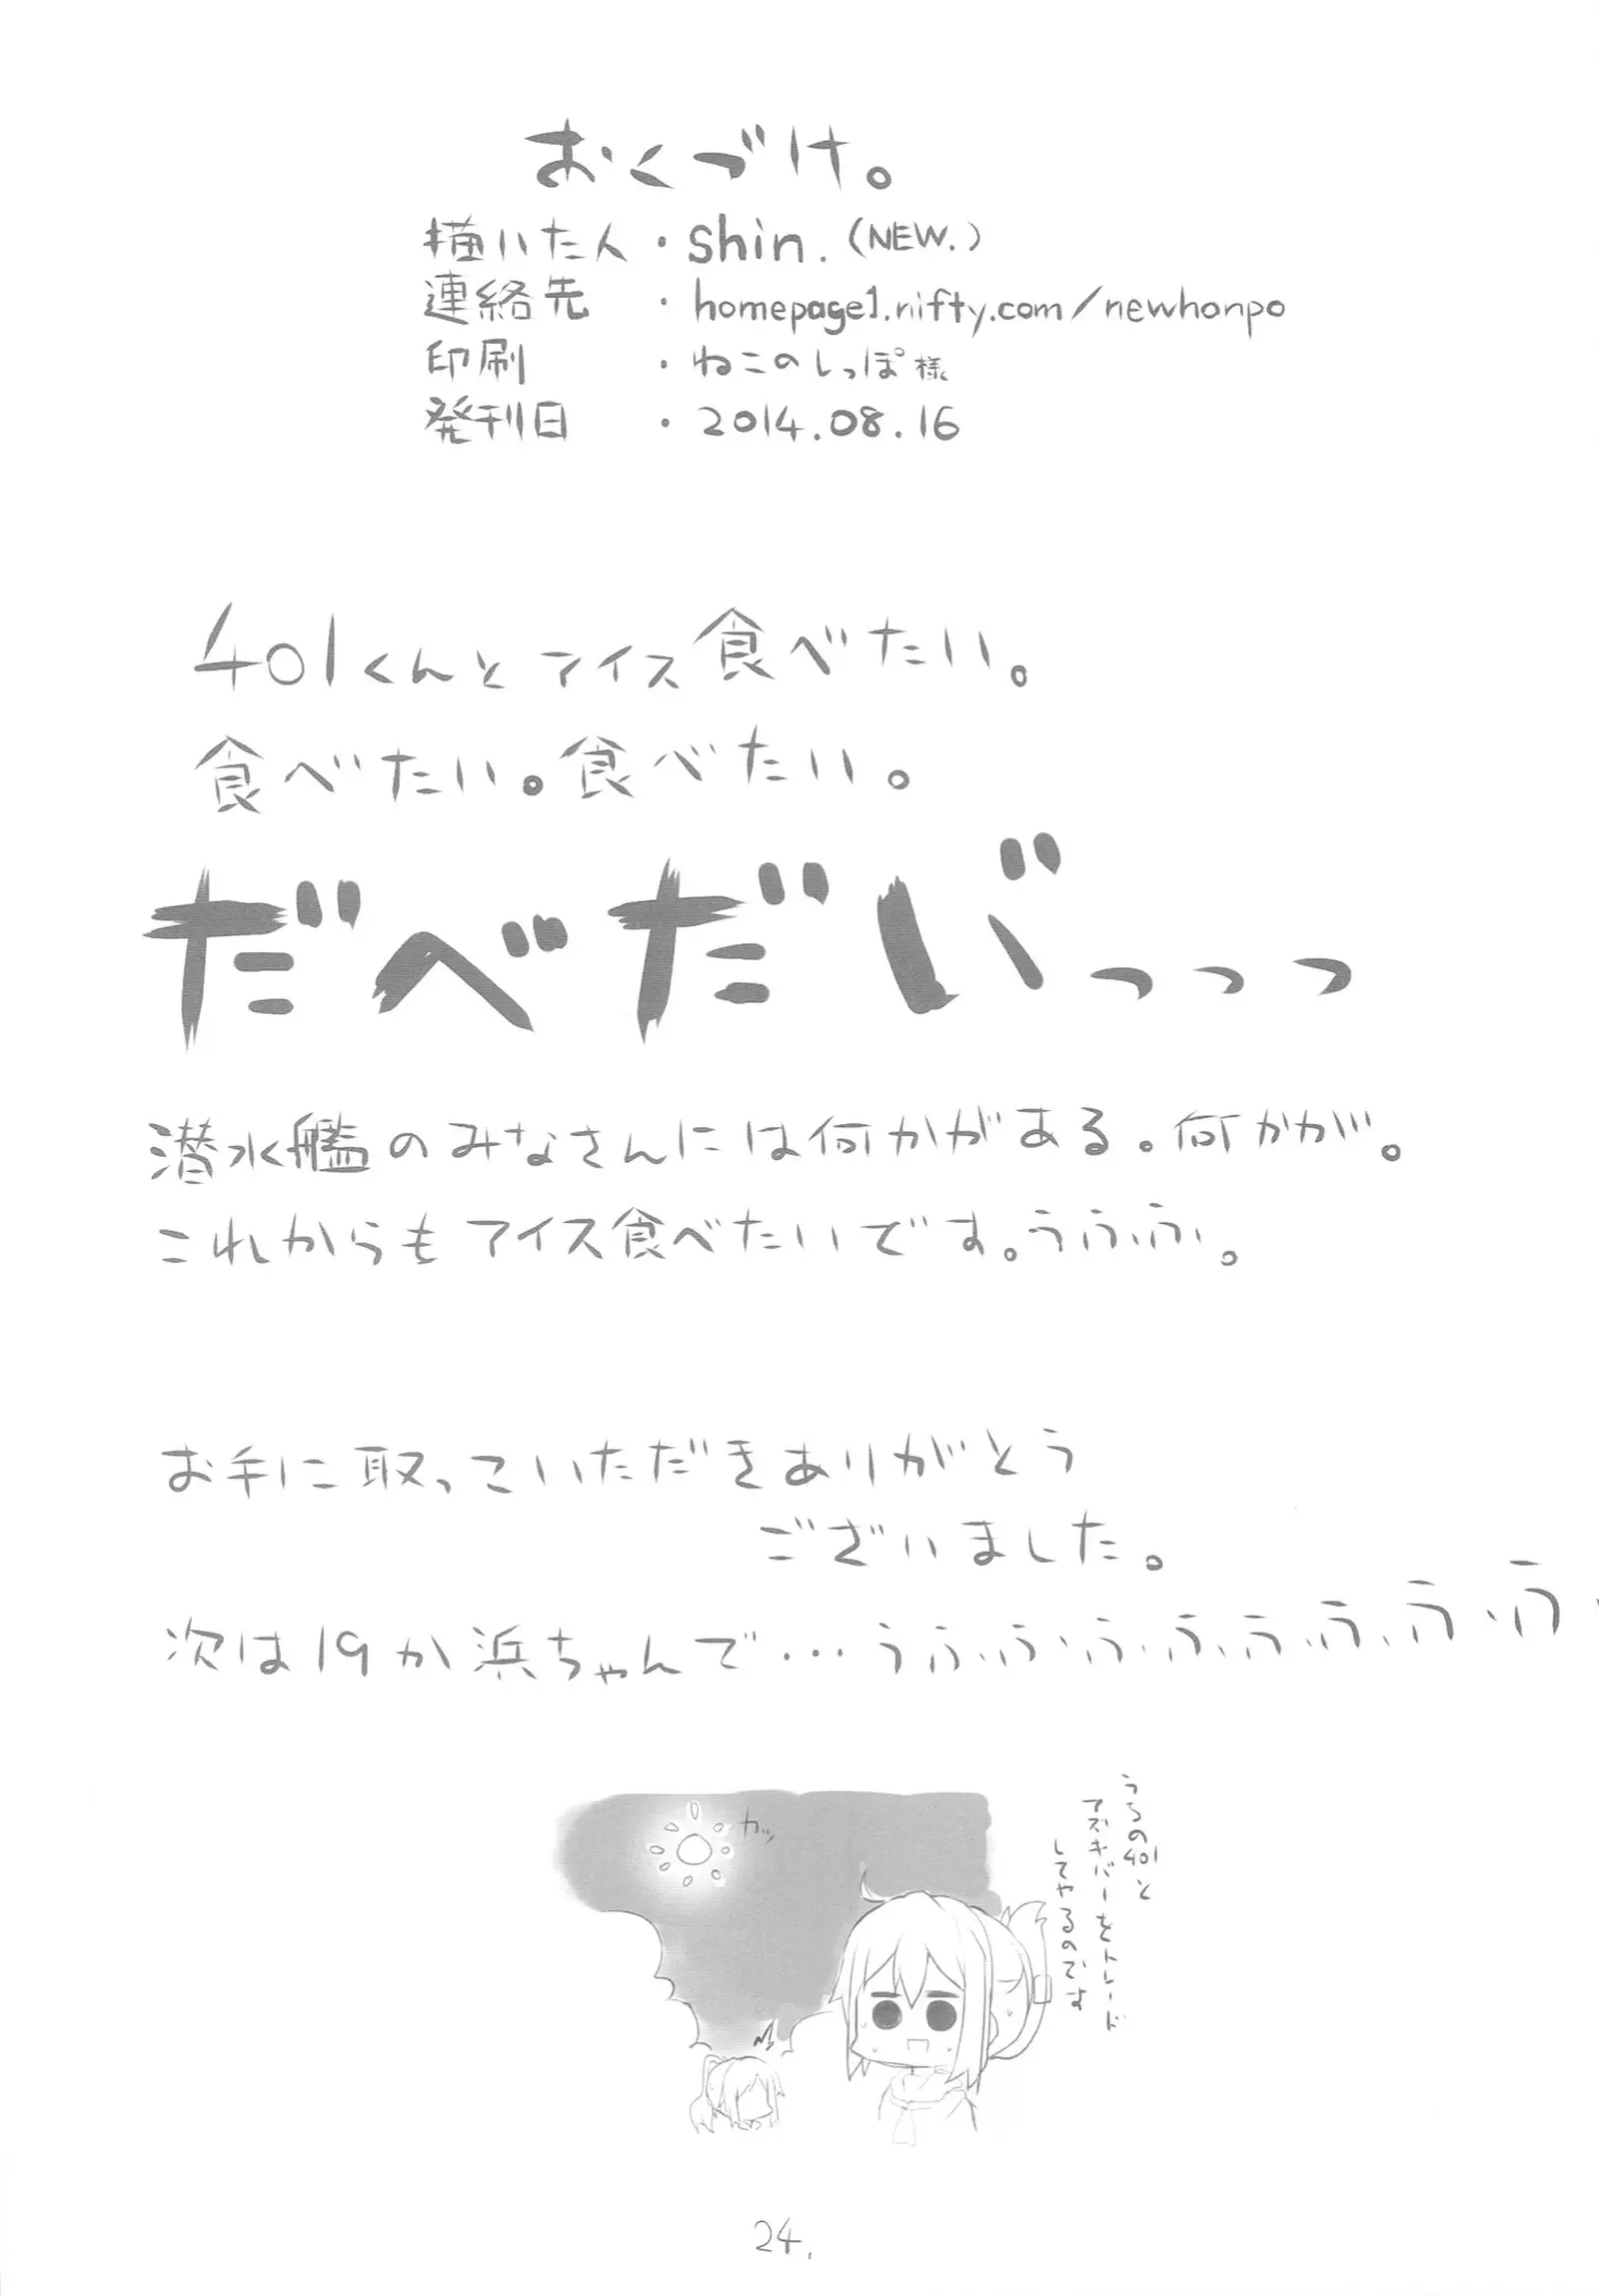 おくづけ。
描いた人・shin.(NEW.)
連絡先・homepage1.nifty.com/newhonpo
印刷・ねこのしっぽ様
発刊日・2014.08.16
401くんとアイス食べたい。
食べたい。食べたい。
だべだいっっっ
潜水艦のみなさんには何かがある。何かが。
これからもアイス食べたいです。うふふ。
お手に取っていただきありがとう
ございました。
次は19か浜ちゃんで…うふふふふふふふふ
カッ
うちの401と
アズキバーをトレード
してやるのです
24.